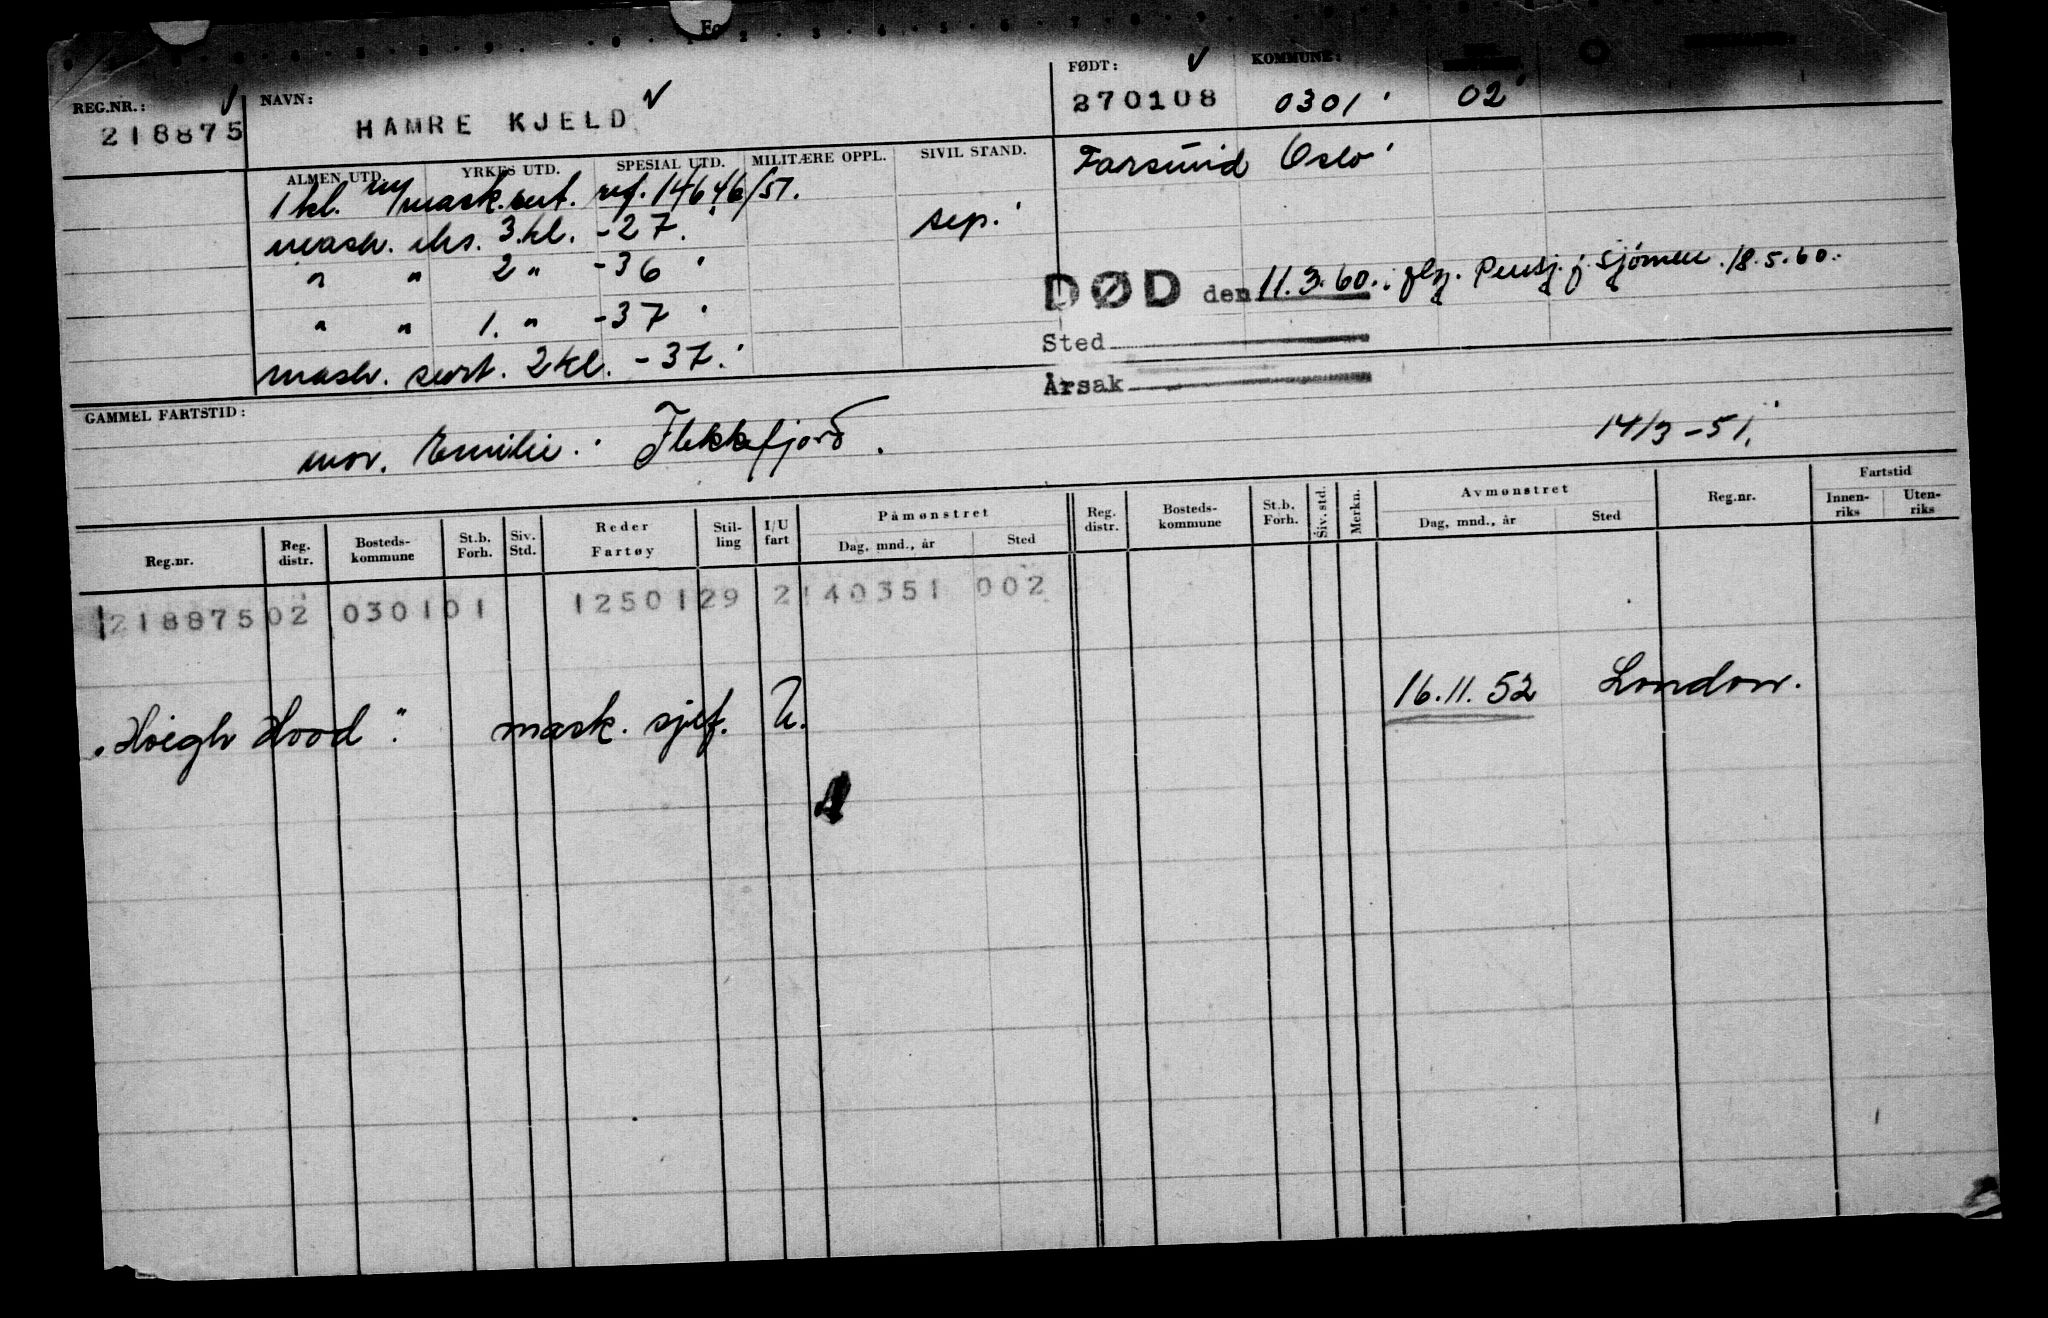 REG.NR.: NAVN: FØDT: KOMMUNE:
218875 HAMRE KJELD 270108 0301 02
ALMEN UTD. YRKES UTD. SPESIAL UTD. MILITÆRE OPPL. SIVIL STAND. Farsund Oslo
1 kl. m/mask.sert. ref. 14646/51.
mask. eks. 3.kl. -27. sep.
" " 2 " -36
DØD den 11.3.60. flg. Pensj. f. sjømenn. 18.5.60.
" " 1. " -37
Sted
mask. sert. 2 kl. -37.
Årsak
GAMMEL FARTSTID:
mor. Emilie. Flekkefjord. 14/3-51.
Reg.nr. Reg. distr. Bosteds-kommune St.b. Forh. Siv. Std. Reder Fartøy Stil-ling I/U fart Påmønstret Dag, mnd., år Sted Reg. distr. Bosteds-kommune St.b. Forh. Siv. std. Merkn. Avmønstret Dag, mnd., år Sted Reg.nr. Fartstid Innen-riks Uten-riks
218875 02 0301 01 1250129 2 140351 002
"Höegh Hood". mask. sjef. U. 16.11.52 London.